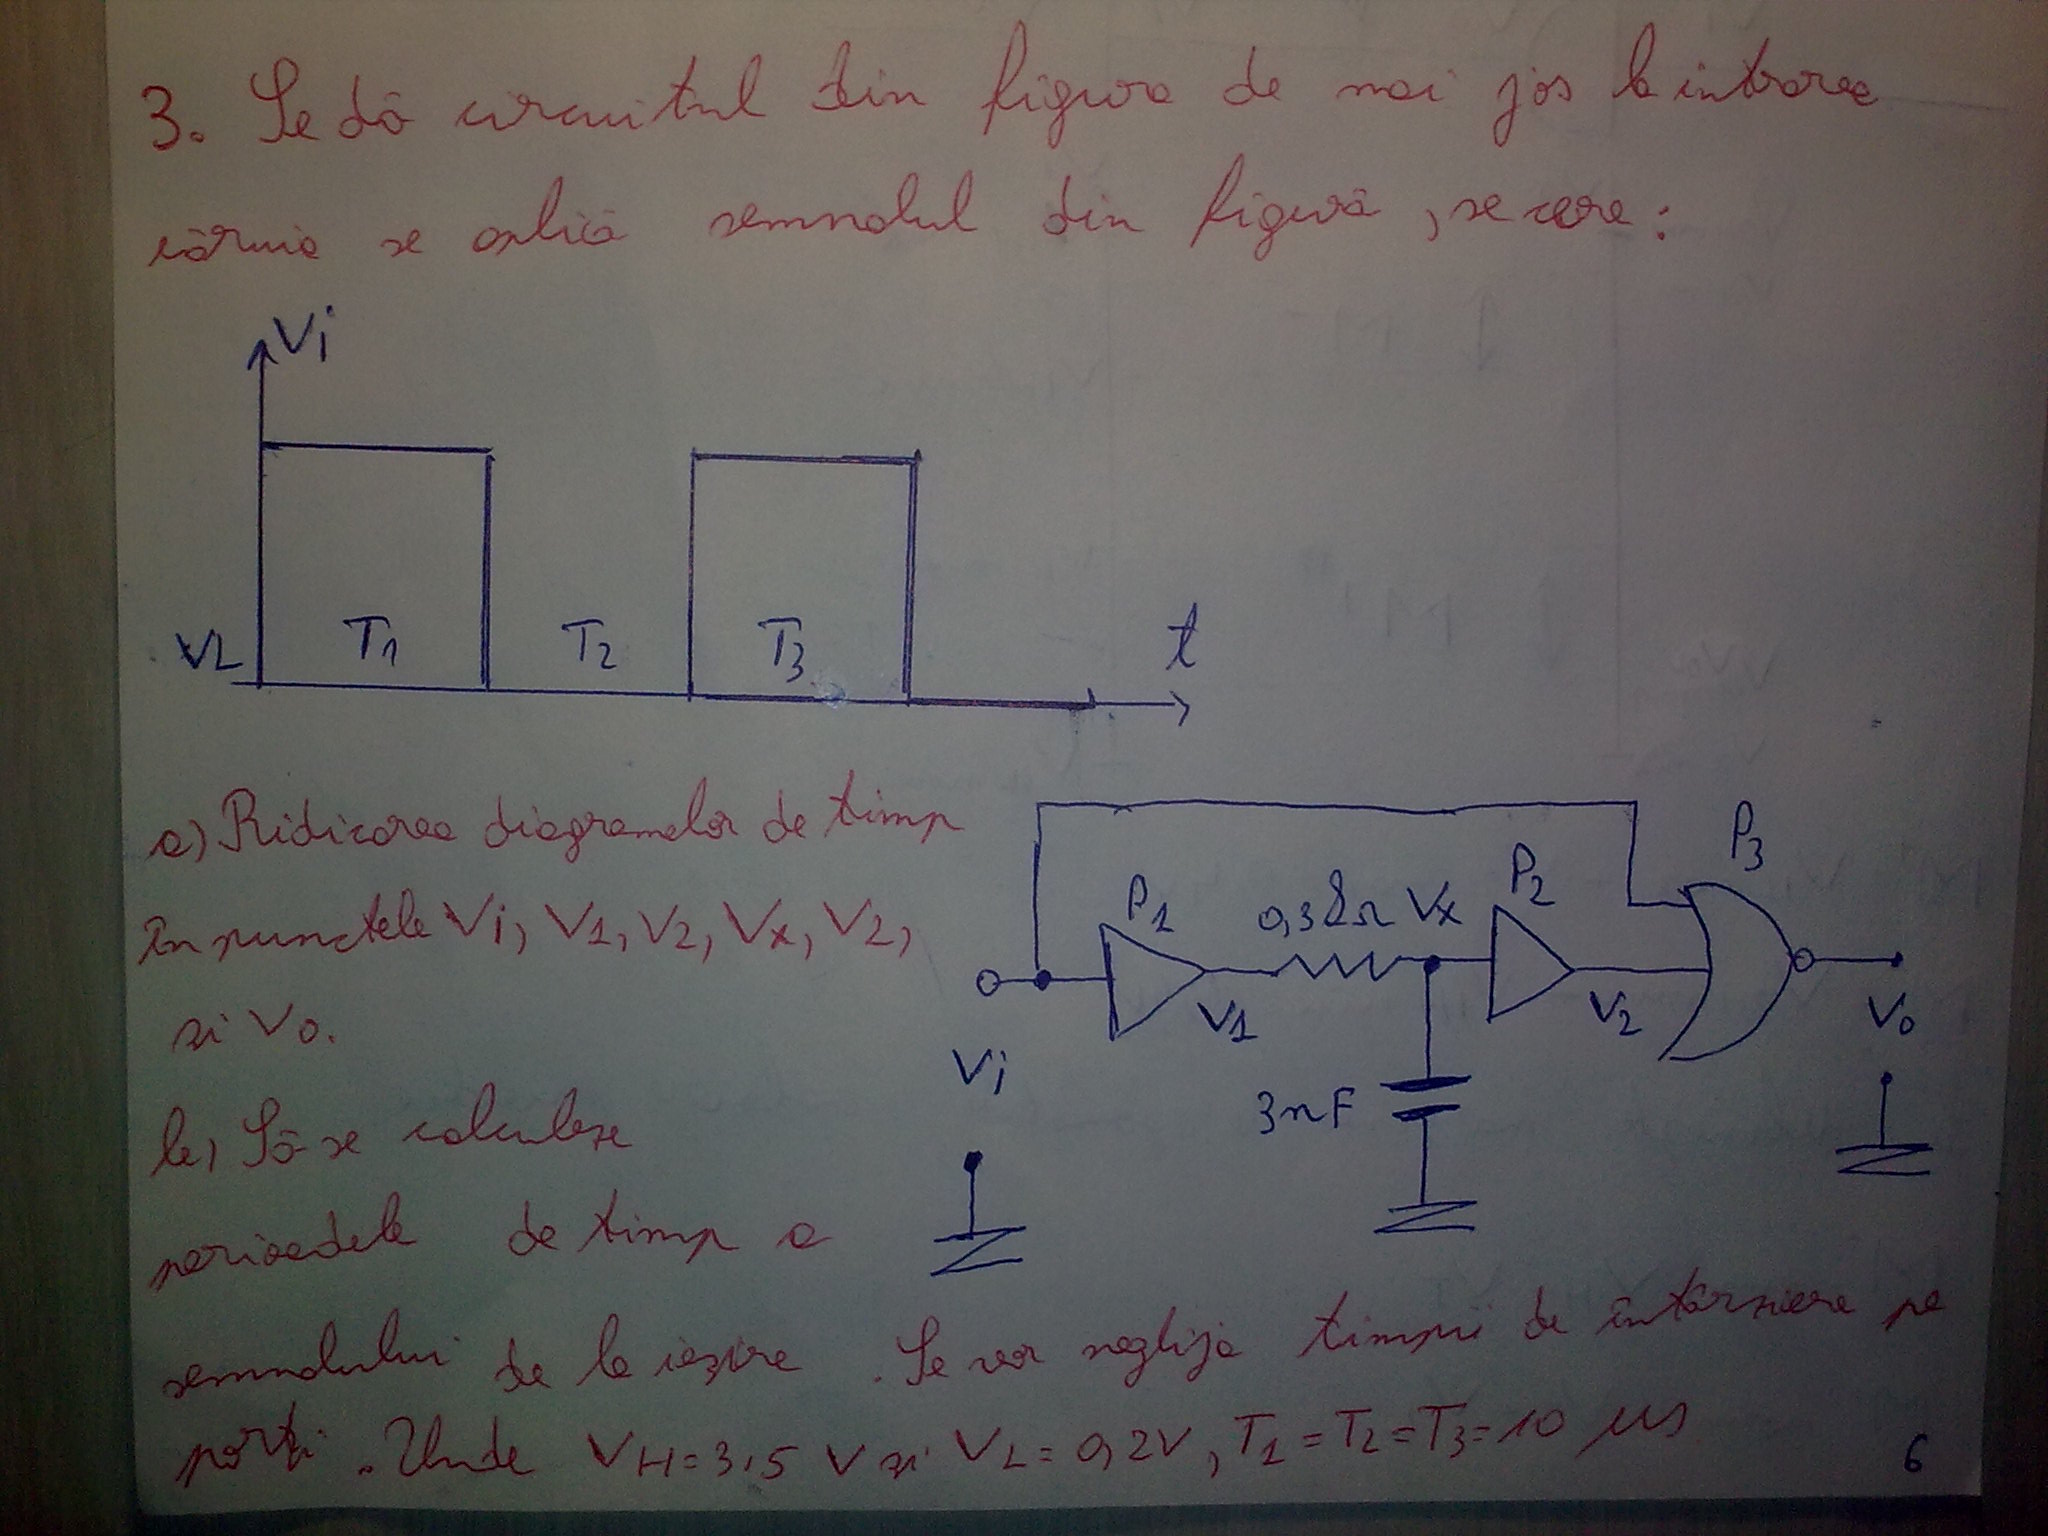 3. Se dă circuitul din figura de mai jos la intrarea
căruia se aplică semnalul din figură, se cere:
Vi
VL T1 T2 T3 t
a) Ridicarea diagramelor de timp
în punctele Vi, V1, V2, Vx, V2,
si Vo.
b) Să se calculeze
perioadele de timp a
semnalului de la ieșire. Se vor neglija timpii de întârziere pe
porți. Unde VH=3,5 V si VL=0,2V, T1=T2=T3=10 µs
P1 V1 Vx P2 V2 P3
Vi
3nF
Vo
6